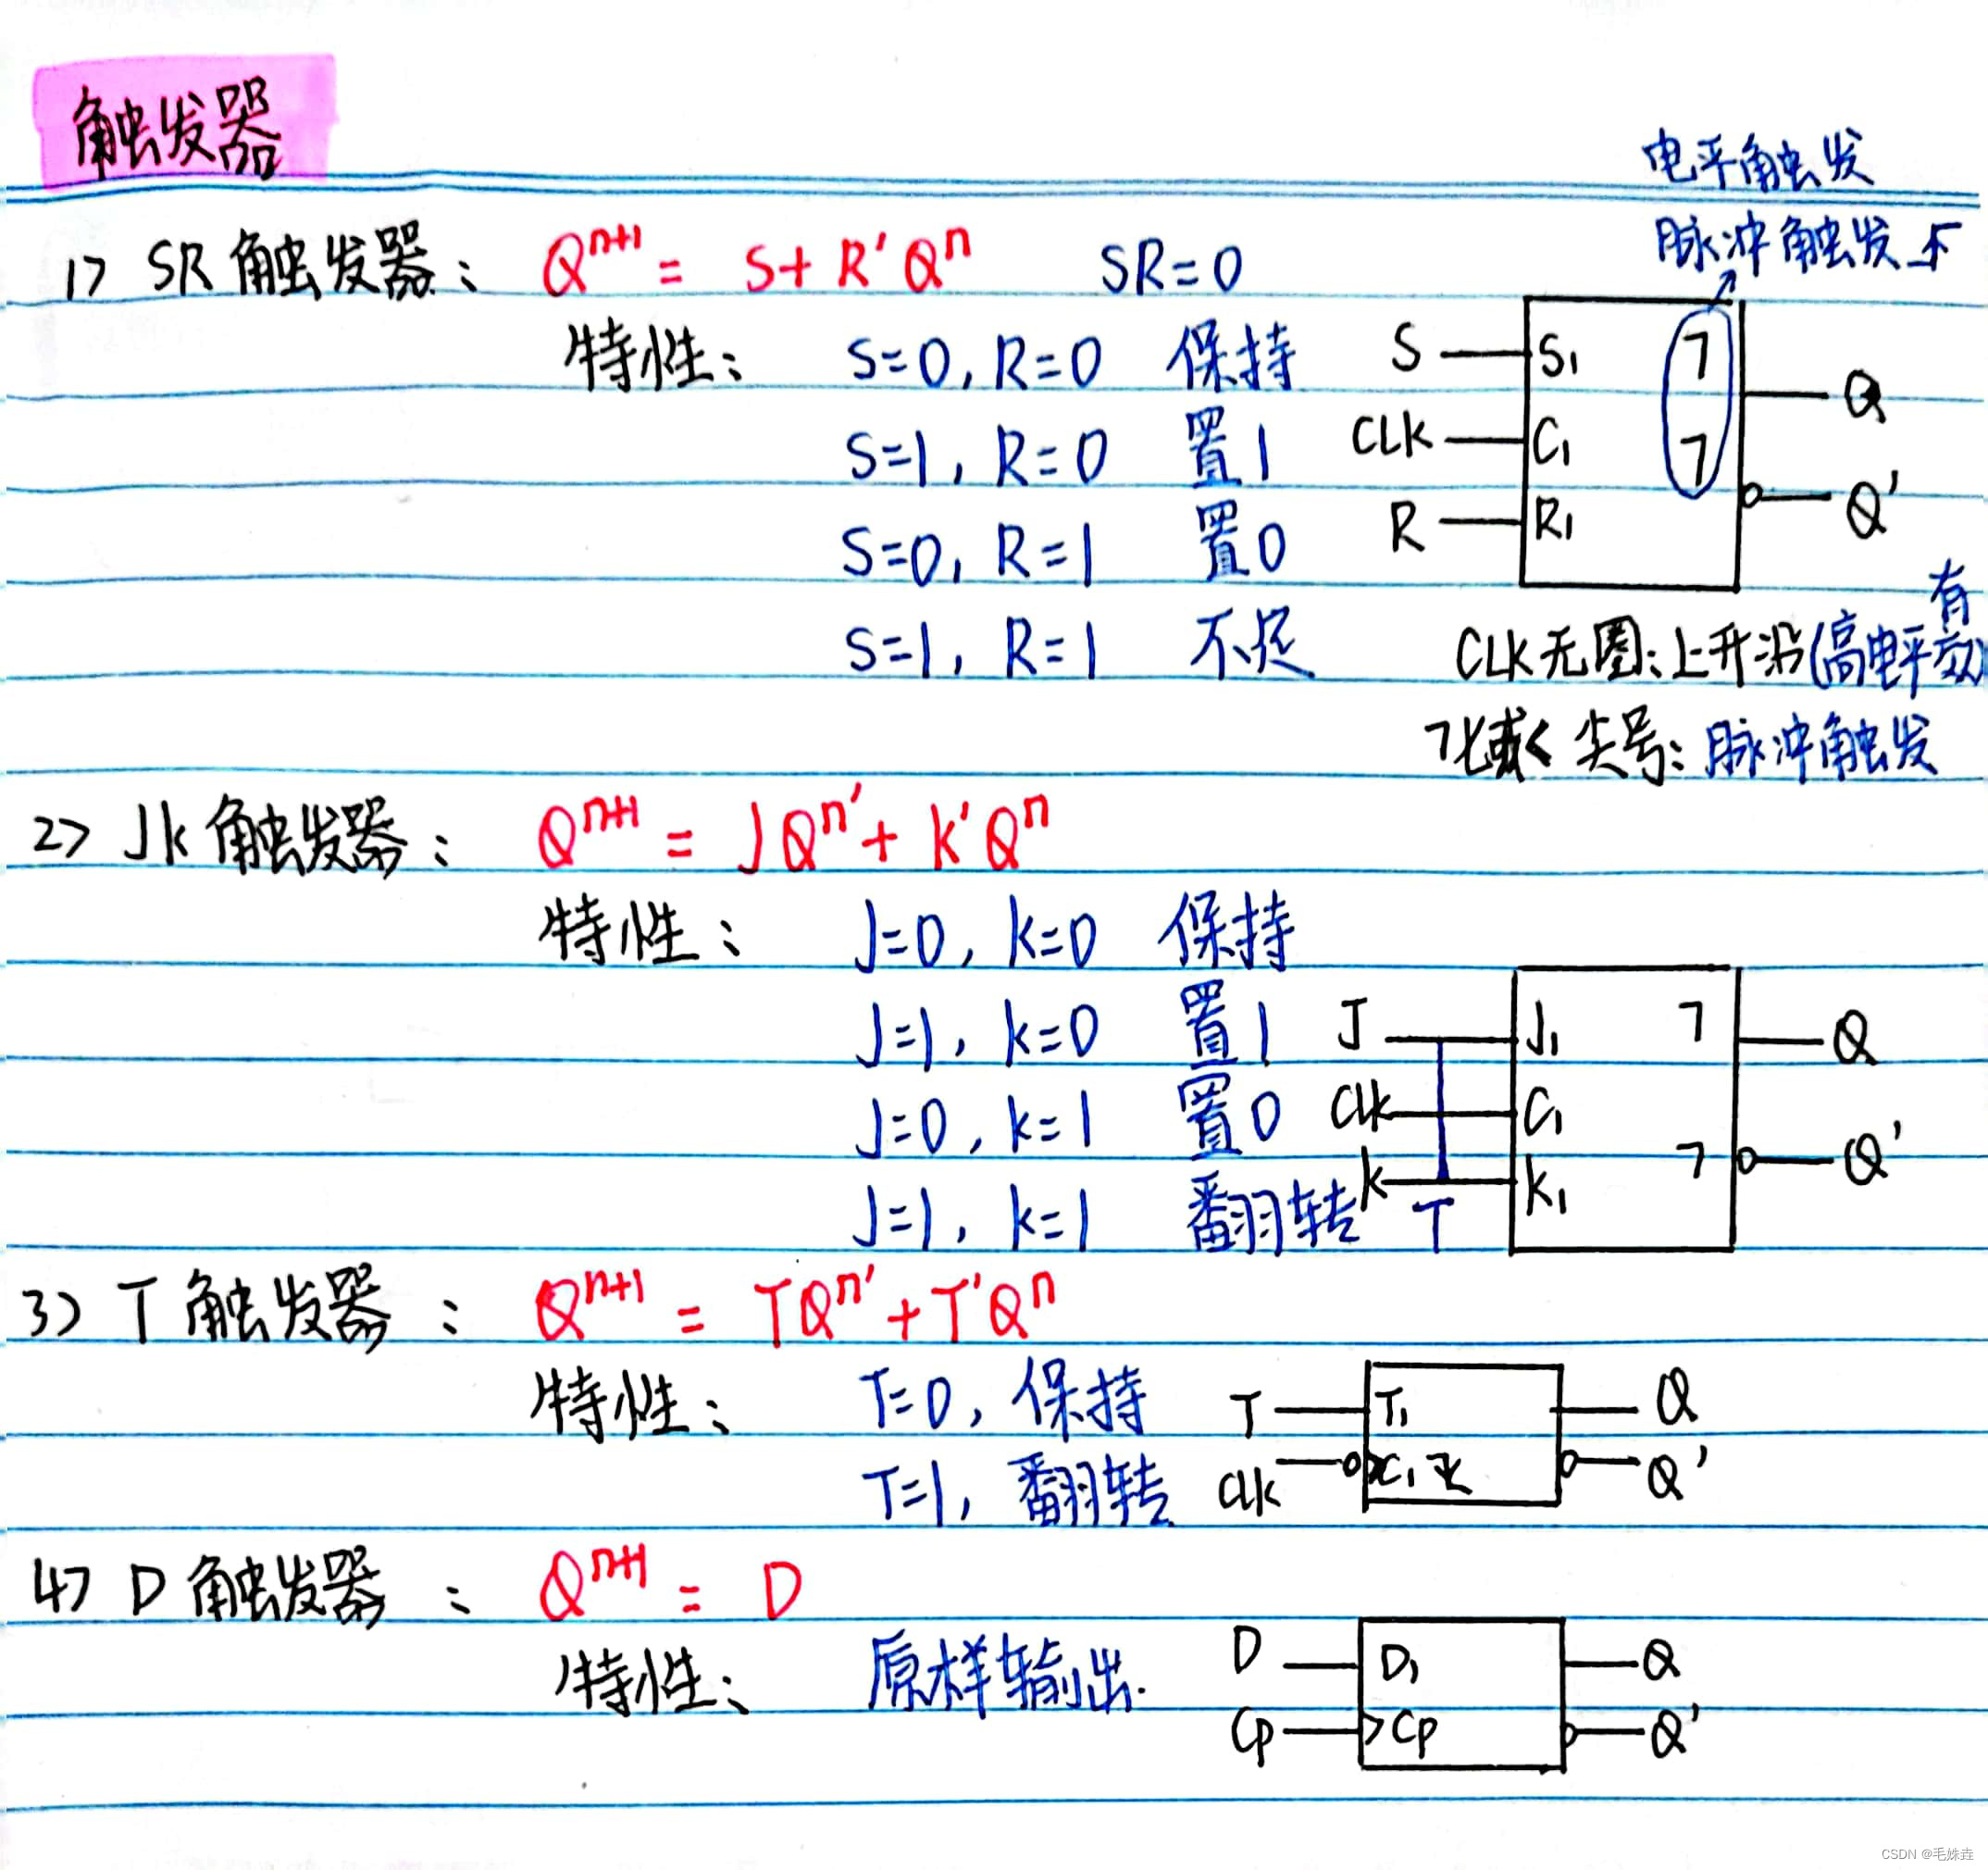 触发器
电平触发
1> SR 触发器: Qⁿ⁺¹ = S + R'Qⁿ SR=0 脉冲触发
特性: S=0, R=0 保持
S=1, R=0 置1
S=0, R=1 置0
S=1, R=1 不定
S S₁ ㄱ Q
CLK C₁ ㄱ
R R₁ Q'
CLK 无圈: 上升沿 (高电平有效)
尖号: 脉冲触发
2> Jk 触发器: Qⁿ⁺¹ = JQⁿ' + k'Qⁿ
特性: J=0, k=0 保持
J=1, k=0 置1
J=0, k=1 置0
J=1, k=1 翻转
J J₁ ㄱ Q
Clk C₁
k k₁ ㄱ Q'
T
3) T 触发器: Qⁿ⁺¹ = TQⁿ' + T'Qⁿ
特性: T=0, 保持
T=1, 翻转
T T₁ Q
Clk C₁ Q'
4> D 触发器: Qⁿ⁺¹ = D
特性: 原样输出.
D D₁ Q
Cp >Cp Q'
CSDN @毛姝垚